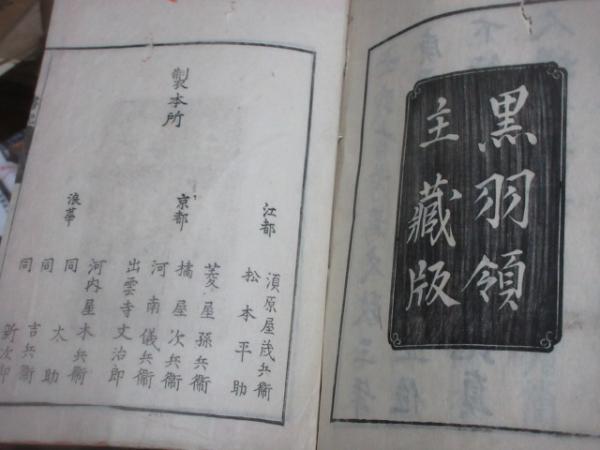 黒羽領
主藏版
製本所
江都
須原屋茂兵衞
松本平助
京都
菱屋孫兵衞
橘屋次兵衞
河南儀兵衞
出雲寺文治郎
浪華
河内屋木兵衞
同 太助
同 吉兵衞
同 新次郎